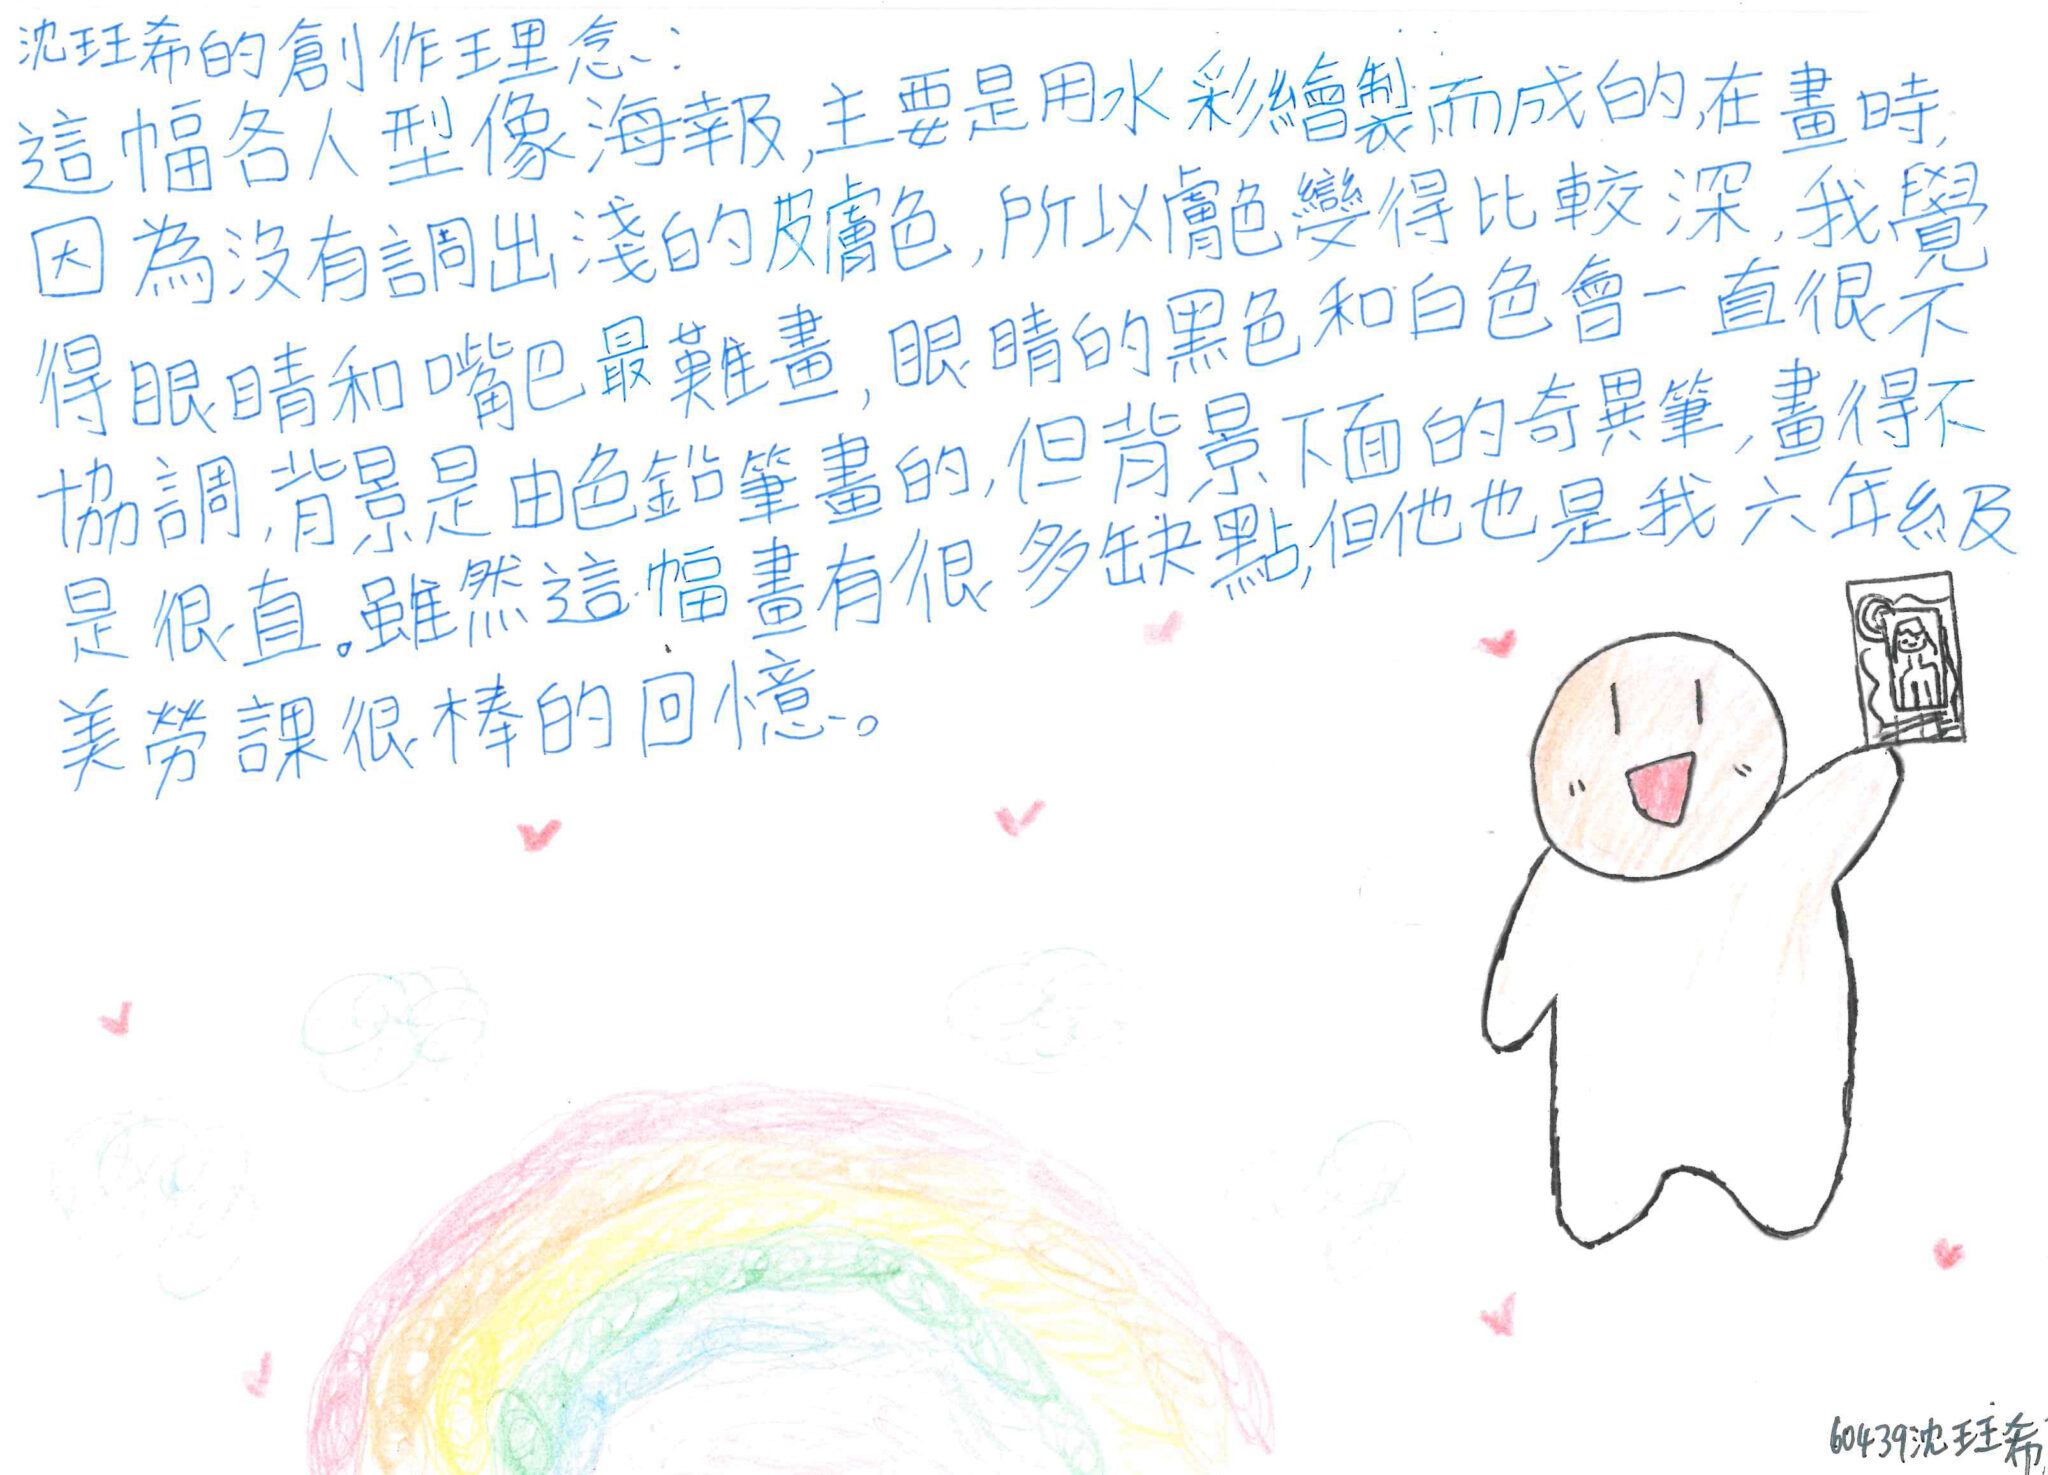 沈玨希的創作理念:
這幅各人型像海報,主要是用水彩繪製而成的,在畫時,
因為沒有調出淺的皮膚色,所以膚色變得比較深,我覺
得眼睛和嘴巴最難畫,眼睛的黑色和白色會一直很不
協調,背景是由色鉛筆畫的,但背景下面的奇異筆,畫得不
是很直。雖然這幅畫有很多缺點,但他也是我六年級
美勞課很棒的回憶。
60439沈玨希